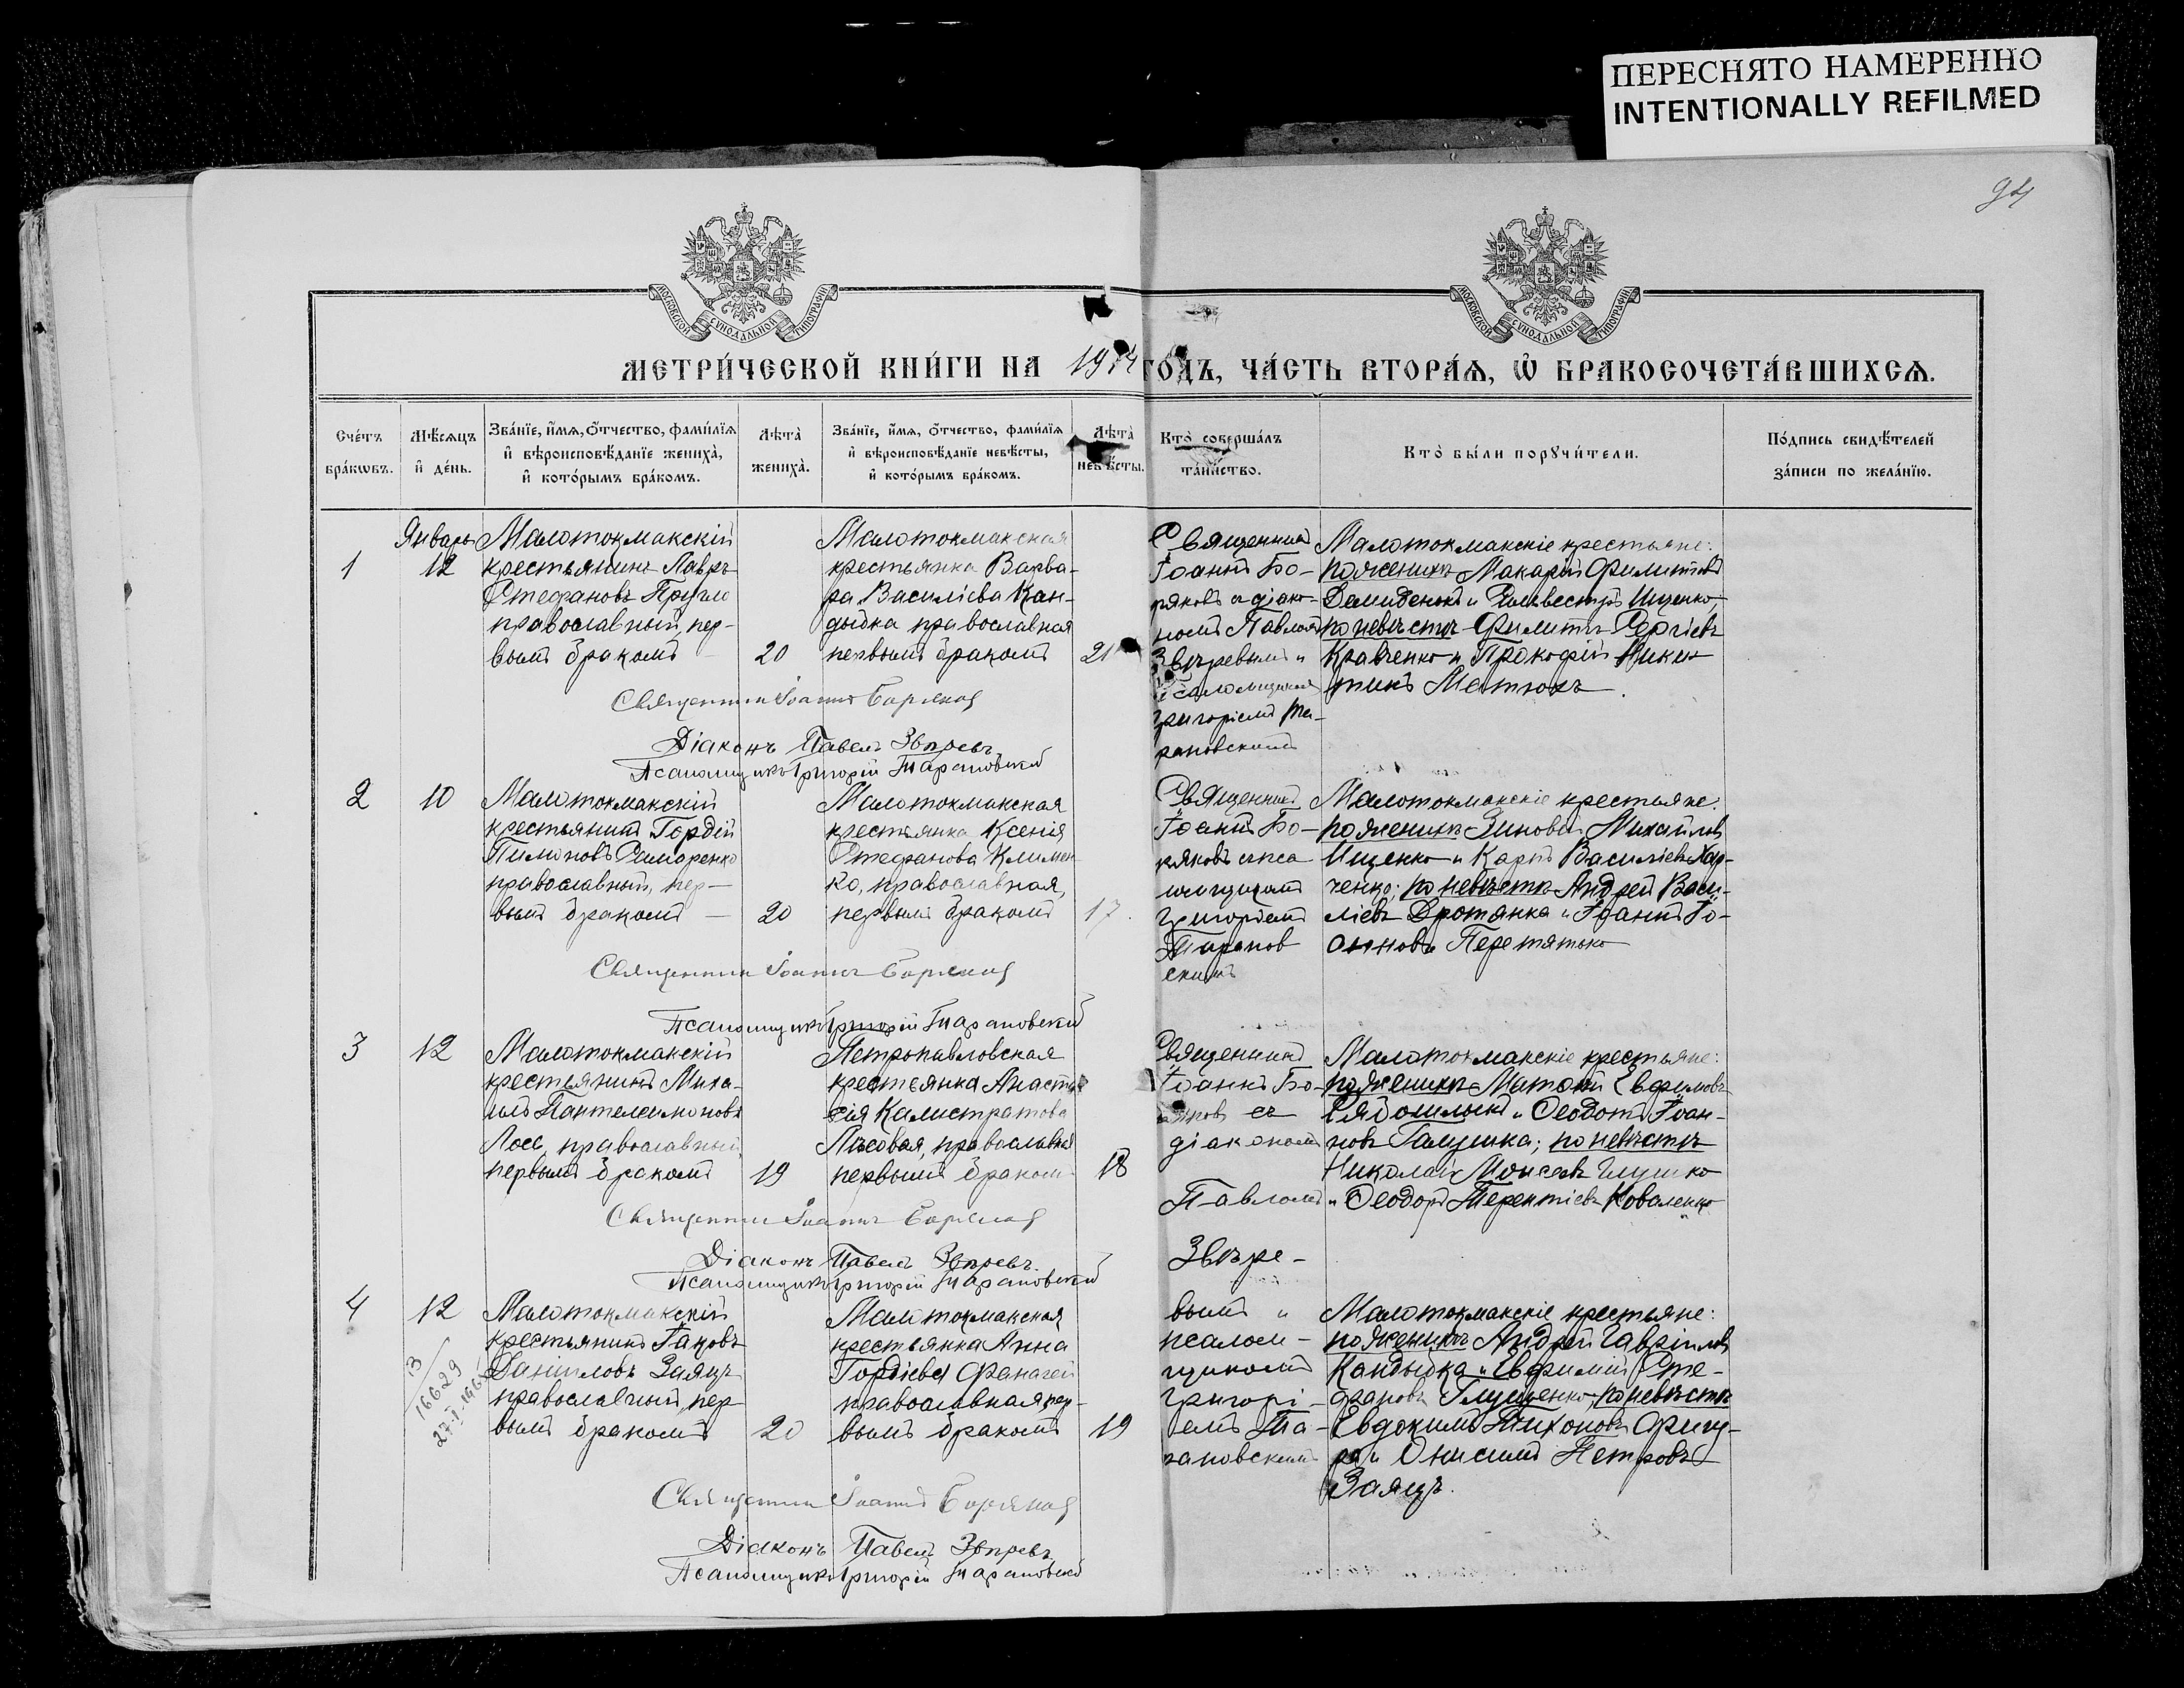 ПЕРЕСНЯТО НАМЕРЕННО
INTENTIONALLY REFILMED
94
МОСКОВСКОЙ СѴНОДАЛЬНОЙ ТИПОГРАФІИ
МОСКОВСКОЙ СѴНОДАЛЬНОЙ ТИПОГРАФІИ
МЕТРИ́ЧЕСКОЙ КНИ́ГИ НА 1914 ГОДЪ, ЧА́СТЬ ВТОРА́Ѧ, Ѡ҆ БРАКОСОЧЕТА́ВШИХСѦ.
Сче́тъ
бра́кѡвъ.
Мѣ́сяцъ
и҆ де́нь.
Зва́нїе, и҆́мѧ, о҆́тчество, фами́лїѧ
и҆ вѣроисповѣ́данїе жениха̀,
и҆ кото́рымъ бра́комъ.
Лѣта̀
жениха̀.
Зва́нїе, и҆́мѧ, о҆́тчество, фами́лїѧ
и҆ вѣроисповѣ́данїе невѣ́сты,
и҆ кото́рымъ бра́комъ.
Лѣта̀
невѣ́сты.
Кто̀ соверша́лъ
та́инство.
Кто̀ бы́ли порꙋчи́тели.
По́дпись свидѣ́телей
за́писи по жела́нїю.
1
Январь
12
Малотокмакскій
крестьянинъ Лавръ
Стефановъ Пругло
православный, пер-
вымъ бракомъ
20
Малотокмакская
крестьянка Варва-
ра Василіева Кан-
дыбка православная
первымъ бракомъ
21
Священникъ
Іоаннъ Бо-
ряковъ съ діако-
номъ Павломъ
Звѣревымъ и
псаломщикомъ
Григоріемъ Та-
рановскимъ
Малотокмакскіе крестьяне:
по женихѣ Макарій Филиповъ
Демиденко и Сильвестръ Ищенко,
по невѣстѣ Филиппъ Сергіевъ
Кравченко и Прокофій Ники-
тинъ Матюхъ.
Священникъ Іоаннъ Боряковъ
Діаконъ Павелъ Звѣревъ
Псаломщикъ Григорій Тарановскій
2
10
Малотокмакскій
крестьянинъ Гордій
Пимоновъ Самаренко
православный, пер-
вымъ бракомъ
20
Малотокмакская
крестьянка Ксенія
Стефанова Климен-
ко, православная,
первымъ бракомъ
17
Священникъ
Іоаннъ Бо-
ряковъ съ пса
ломщикомъ
Григоріемъ
Таранов
скимъ
Малотокмакскіе крестьяне:
по женихѣ Зиновій Михайловъ
Ищенко и Карпъ Василіевъ Хар-
ченко; по невѣстѣ Андрей Васи-
ліевъ Дротянка и Іоаннъ Іо-
анновъ Перетятько
Священникъ Іоаннъ Боряковъ
Псаломщикъ Григорій Тарановскій
3
12
Малотокмакскій
крестьянинъ Миха-
илъ Пантелеимоновъ
Лосс, православный,
первымъ бракомъ
19
Петропавловская
крестьянка Анаста-
сія Калистратова
Лисовая, православная
первымъ бракомъ
18
Священникъ
Іоаннъ Бо-
ряковъ съ
діакономъ
Павломъ
Звѣре-
Малотокмакскіе крестьяне:
по женихѣ Евфимовъ
и Ѳеодотъ Іоан-
новъ Галушка; по невѣстѣ
Николай Моисеевъ Глушко
и Ѳеодоръ Терентіевъ Коваленко
Священникъ Іоаннъ Боряковъ
Діаконъ Павелъ Звѣревъ.
Псаломщикъ Григорій Тарановскій
4
12
13
16629
27.I.196
Малотокмакскій
крестьянинъ Іаковъ
Даниловъ Заяцъ
православный, пер
вымъ бракомъ
20
Малотокмакская
крестьянка Анна
Гордіева Фанагей
православная, пер-
вымъ бракомъ
19
вымъ и
псалом-
щикомъ
Григорі-
емъ Та-
рановскимъ
Малотокмакскіе крестьяне:
по женихѣ Андрей Гавріиловъ
Кандыбка и Евфимій Сте-
фановъ Глущенко, по невѣстѣ
Евдокимъ Тихоновъ Фигу-
ра и Онисимъ Петровъ
Заяцъ.
Священникъ Іоаннъ Боряковъ
Діаконъ Павелъ Звѣревъ
Псаломщикъ Григорій Тарановскій